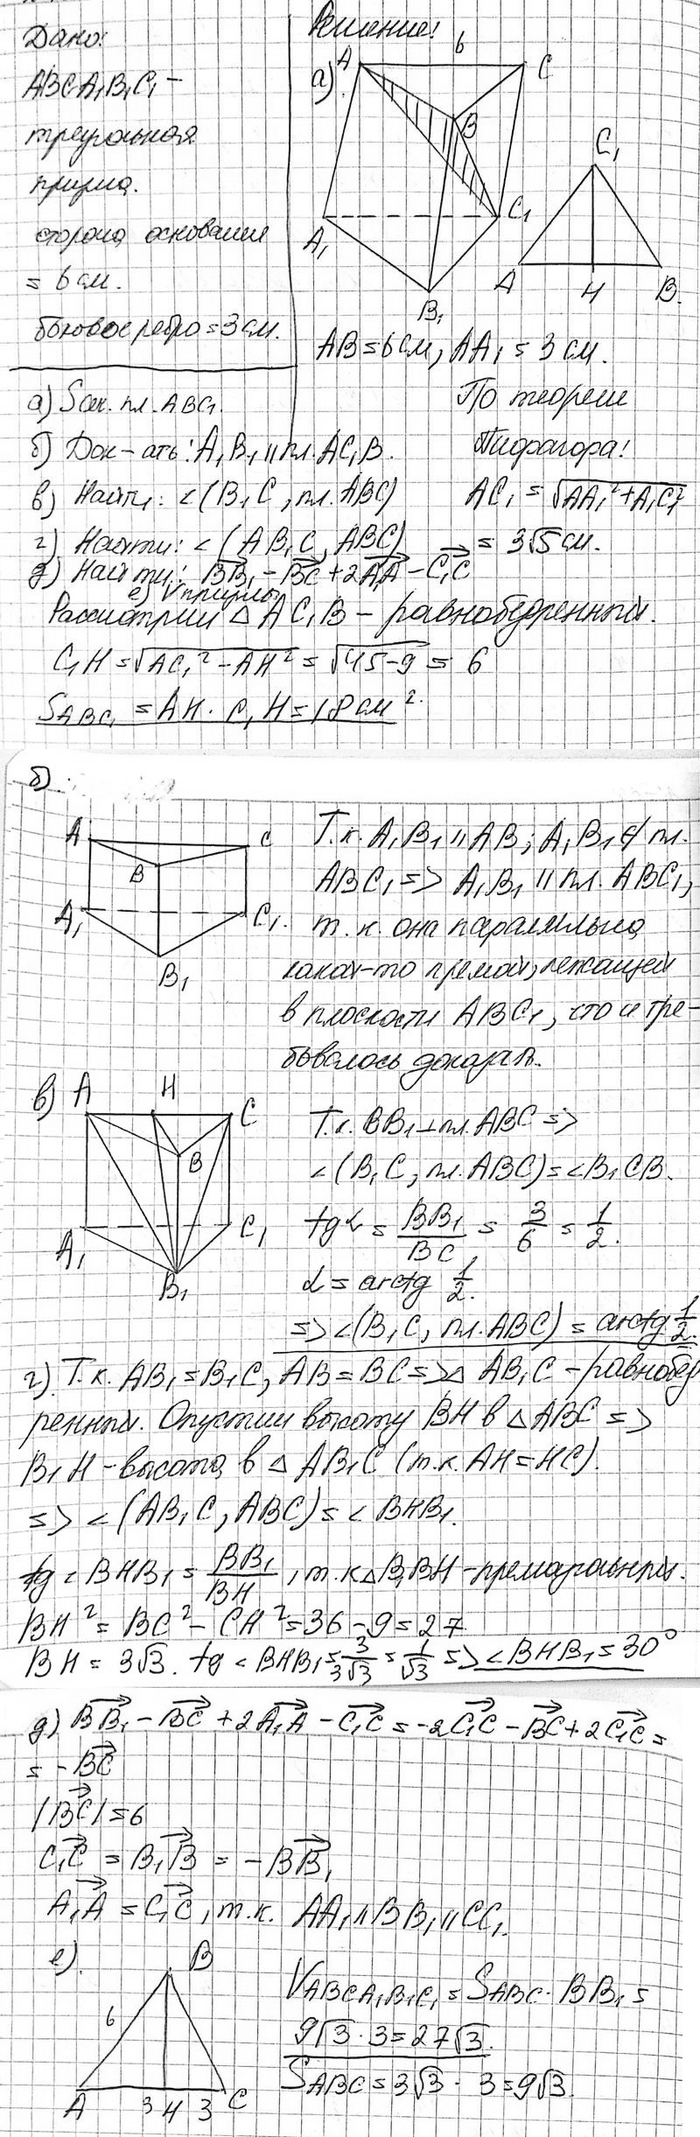 Дано:
ABCA₁B₁C₁ –
треугольная
призма.
сторона основания
= 6 см.
боковое ребро = 3 см.
а) Sсек. пл. ABC₁.
б) Док-ать: A₁B₁ || пл. AC₁B.
в) Найти: <(B₁C, пл. ABC)
г) Найти: <(AB₁C, ABC)
д) Найти: BB₁ - BC + 2A₁A - C₁C
е) V призмы
Решение:
а)
A
6
C
B
A₁
C₁
B₁
C₁
A
H
B
AB = 6 см, AA₁ = 3 см.
По теореме
Пифагора:
AC₁ = √AA₁² + A₁C₁²
= 3√5 см.
Рассмотрим △ AC₁B – равнобедренный.
C₁H = √AC₁² - AH² = √45-9 = 6
SABC₁ = AH · C₁H = 18 см².
б)
A
C
B
A₁
C₁
B₁
Т.к. A₁B₁ || AB; A₁B₁ ∉ пл.
ABC₁ => A₁B₁ || пл. ABC₁,
т.к. она параллельна
какой-то прямой, лежащей
в плоскости ABC₁, что и тре-
бовалось доказать.
в)
A
H
C
B
A₁
C₁
B₁
Т.к. BB₁ ⊥ пл. ABC =>
<(B₁C, пл. ABC) = <B₁CB.
tgα = BB₁/BC = 3/6 = 1/2.
α = arctg 1/2.
=> <(B₁C, пл. ABC) = arctg 1/2.
г) Т.к. AB₁ = B₁C, AB = BC => △ AB₁C – равнобед
ренный. Опустим высоту BH в △ ABC =>
B₁H – высота в △ AB₁C (т.к. AH = HC).
=> <(AB₁C, ABC) = < BHB₁.
tg < BHB₁ = BB₁/BH, т.к △ B₁BH – прямоугольный.
BH² = BC² - CH² = 36 - 9 = 27
BH = 3√3. tg < BHB₁ = 3/3√3 = 1/√3 => < BHB₁ = 30°
д) BB₁ - BC + 2A₁A - C₁C = -2C₁C - BC + 2C₁C =
= - BC
|BC| = 6
C₁C = B₁B = - BB₁
A₁A = C₁C, т.к. AA₁ || BB₁ || CC₁.
е)
B
6
A
3
H
3
C
VABCA₁B₁C₁ = SABC · BB₁ =
9√3 · 3 = 27√3.
SABC = 3√3 · 3 = 9√3.